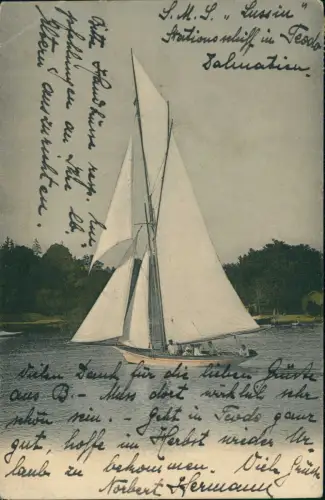 S. M. S. „Lussin"
Stationsschiff in Teodo
Dalmatien.
Bitte Handküsse resp. Em
pfehlungen an Ihre lb.
Eltern auszurichten.
Vielen Dank für die lieben Grüsse
aus B. - Muss dort wirklich sehr
schön sein. - Geht in Teodo ganz
gut, hoffe im Herbst wieder Ur
laub zu bekommen. Viele Grüsse
Norbert Hermann